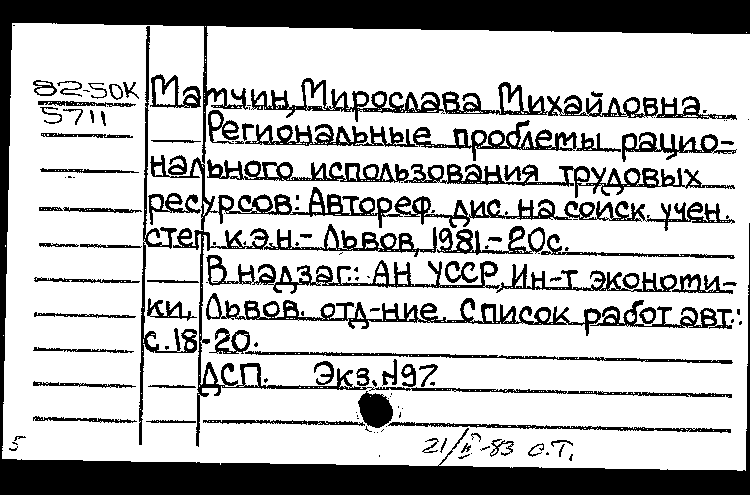 82-50К Матчин, Мирослава Михайловна.
5711
Региональные проблемы рацио-
нального использования трудовых
ресурсов: Автореф. дис. на соиск. учен.
степ. к.э.н. - Львов, 1981. - 20с.
В надзаг.: АН УССР, Ин-т экономи-
ки, Львов. отд-ние. Список работ авт.:
с. 18-20.
ДСП. Экз. №97.
5 21/II-83 О.Т.